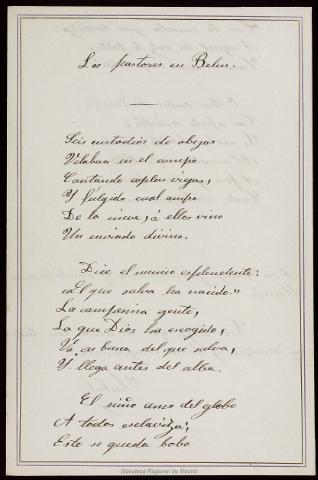 Los pastores en Belen.
Seis custodios de obejas
Velaban en el campo
Cantando coplas viejas,
Y fúlgido cual ampo
De la nieve, á ellos vino
Un enviado divino.
Dice el nuncio esplendente:
"El que salva ha nacido."
La campesina gente,
La que Dios ha escogido,
Vá en busca del que salva,
Y llega antes del alba.
El niño amo del globo
A todos esclaviza;
Este se queda bobo
Biblioteca Regional de Madrid